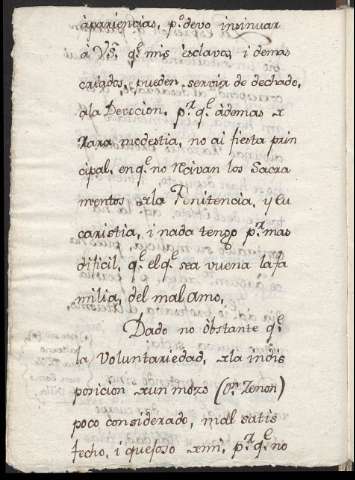 apariencias, p.º devo insinuar
a Vs.ª q.e mis esclavos, i demas
criados, pueden servir de dechado,
ala Devocion, p.r q.e ademas x
Rara modestia, no ai fiesta prin
cipal, enq.e no Recivan los Sacra
mentos xla Penitencia, y Eu
caristia, i nada tengo p.r mas
dificil, q.e elq.e sea vuena lafa
milia, del mal Amo,
Dado no obstante q.e
la voluntariedad, xla indis
posicion xun mozo (p.r Zenon)
poco considerado, mal satis
fecho, i quejoso xmi, p.r q.e no